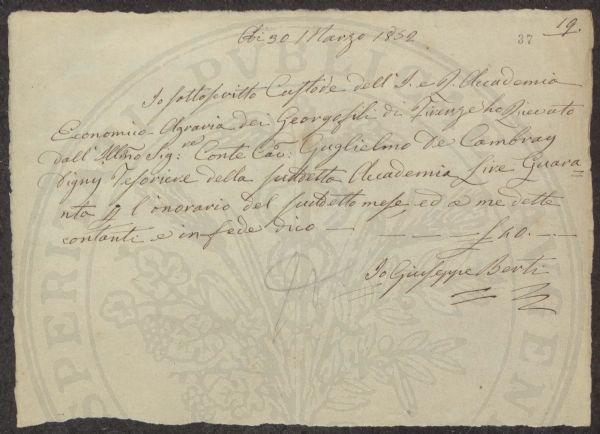 19.
37
Adì 30 Marzo 1852
Io sottoscritto Custode dell' I. e R. Accademia
Economico Agraria dei Georgofili di Firenze ho Ricevuto
dall' Illmo Sig:re Conte Cav: Guglielmo De Cambray
Digny Tesoriere della suddetta Accademia Lire Quara=
nta p l'onorario del suddetto mese, ed a me dette
contanti e in fede dico — — — — — £ 40. — —
Io Giuseppe Berti